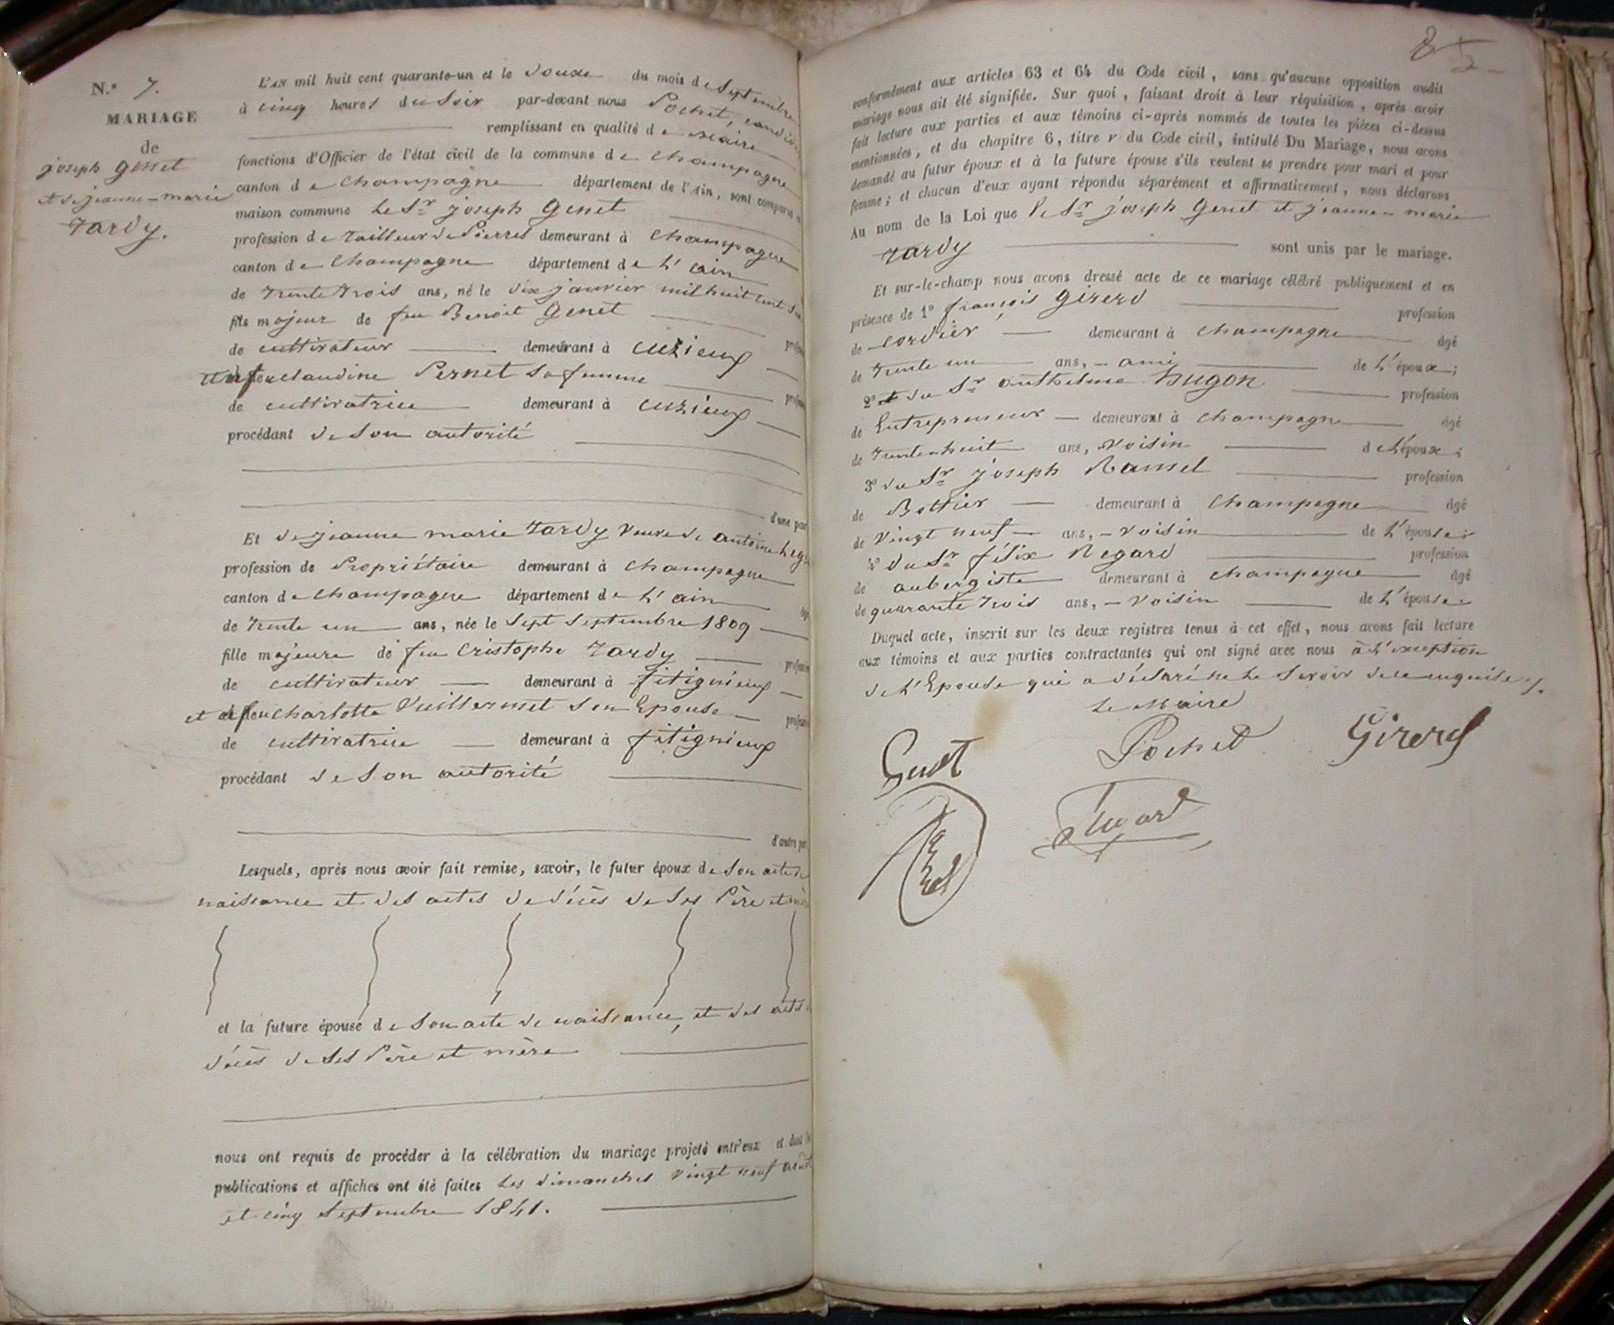 N.º 7.
MARIAGE
de
joseph Genet
et de jeanne-marie
Tardy.
L'AN mil huit cent quarante-un et le Douze du mois de Septembre
à cinq heures du Soir par-devant nous Pochet,
remplissant en qualité de Maire
fonctions d'Officier de l'état civil de la commune de Champagne
canton de Champagne département de l'Ain, sont comparus
maison commune Le Sr. joseph Genet
profession de Tailleur de Pierres demeurant à Champagne
canton de Champagne département de L'ain
de Trente Trois ans, né le Dix janvier mil huit cent
fils majeur de feu Benoit Genet
de cultivateur demeurant à Cuzieux
feu Claudine Pernet Sa femme
de cultivatrice demeurant à Cuzieux
procédant de Son autorité
d'une part
Et de jeanne marie Tardy Veuve de antoine
profession de Propriétaire demeurant à Champagne
canton de Champagne département de L'ain
de Trente un ans, née le Sept Septembre 1809
fille majeure de feu Cristophe Tardy
de cultivateur demeurant à fitignieux
et de feu Charlotte Vuillermet Son Epouse
de cultivatrice demeurant à fitignieux
procédant de Son autorité
d'autre part
Lesquels, après nous avoir fait remise, savoir, le futur époux de Son acte de
naissance et des actes de décès de Ses Père et
et la future épouse de Son acte de naissance, et des actes
décès de Ses Père et mère
nous ont requis de procéder à la célébration du mariage projeté entr'eux et dont
publications et affiches ont été faites Les dimanches Vingt neuf août
et cinq Septembre 1841.
conformément aux articles 63 et 64 du Code civil, sans qu'aucune opposition audit
mariage nous ait été signifiée. Sur quoi, faisant droit à leur réquisition, après avoir
fait lecture aux parties et aux témoins ci-après nommés de toutes les pièces ci-dessus
mentionnées, et du chapitre 6, titre V du Code civil, intitulé Du Mariage, nous avons
demandé au futur époux et à la future épouse s'ils veulent se prendre pour mari et pour
femme; et chacun d'eux ayant répondu séparément et affirmativement, nous déclarons
Au nom de la Loi que le Sr. joseph Genet et jeanne-marie
Tardy sont unis par le mariage.
Et sur-le-champ nous avons dressé acte de ce mariage célébré publiquement et en
présence de 1º françois Girerd profession
de cordier demeurant à Champagne âgé
de Trente un ans, - ami de L'époux;
2º du Sr. anthelme Hugon profession
de Entrepreneur - demeurant à Champagne âgé
de Trente huit ans, Voisin de L'époux;
3º du Sr. joseph Ramel profession
de Bottier demeurant à Champagne âgé
de Vingt neuf ans, - Voisin de L'épouse;
4º du Sr. félix Regard profession
de aubergiste demeurant à Champagne âgé
de quarante Trois ans, - Voisin de L'épouse
Duquel acte, inscrit sur les deux registres tenus à cet effet, nous avons fait lecture
aux témoins et aux parties contractantes qui ont signé avec nous à L'exception
de L'Epouse qui a déclaré ne Le Savoir de ce enquise
Le Maire
Genet Pochet Girerd